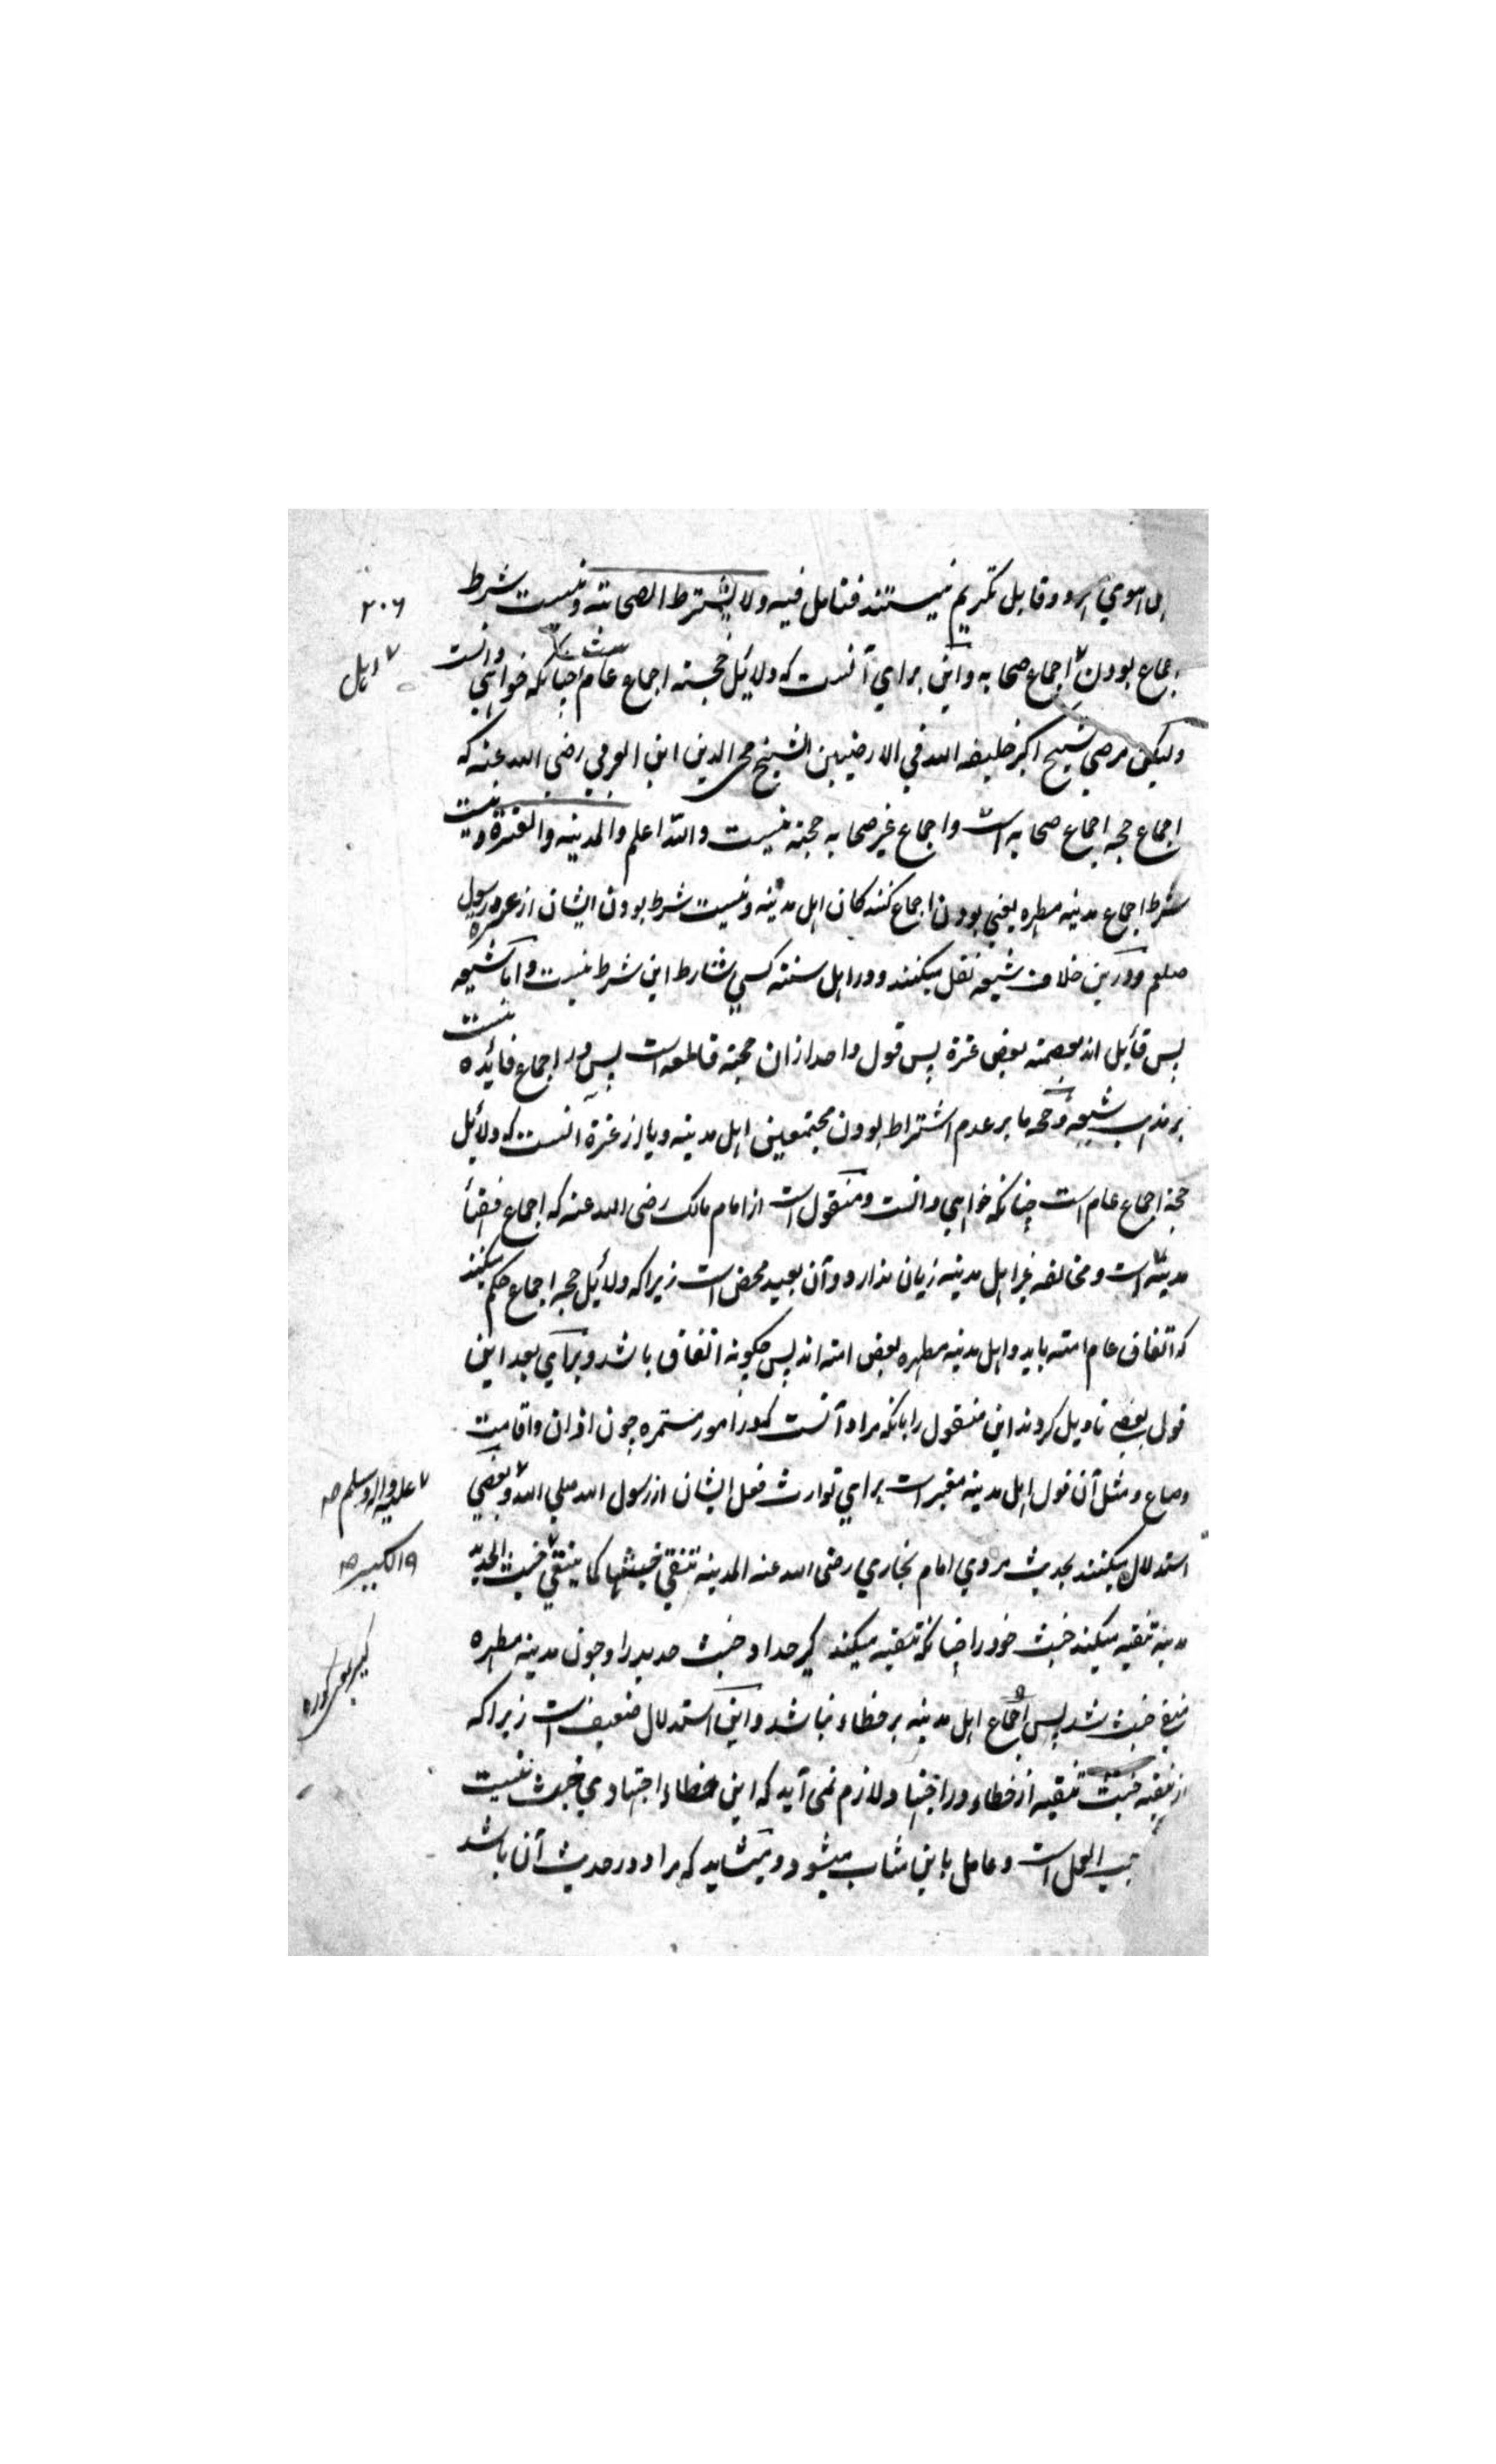 اهل اهوي اند و قابل تکریم نیستند فتامل فیه ولا یشترط الصحابته و نیست شرط
۲۰۶
اجماع بودن اجماع صحابه و این برای آنست که دلائیل حجته اجماع عام است چنانکه خواهی دانست
اهل
ولیکن مرضی شیخ اکبر خلیفه الله فی الارضیین الشیخ محی الدین ابن العربی رضی الله عنه که
اجماع حجه اجماع صحابه است و اجماع غیر صحابه حجته نیست والله اعلم والمدینه والعترة و نیست
شرط اجماع مدینه مطهره یعنی بودن اجماع کنندکان اهل مدینه و نیست شرط بودن ایشان از عتره رسول
صلعم و درین خلاف شیعه نقل میکنند و در اهل سنته کسی شارط این شرط نیست و اما شیعه
پس قائیل اند بعصمته بعض عترة پس قول واحد ازان حجته قاطعه است پس در اجماع فائیده نیست
بر مذهب شیعه و حجه ما بر عدم اشتراط بودن مجتمعین اهل مدینه و یا از عترة انست که دلائیل
حجة اجماع عام است چنانکه خواهی دانست و منقول است از امام مالک رضی الله عنه که اجماع فقط
مدینه است و مخالفه غیر اهل مدینه زیان ندارد و آن بعید محض است زیرا که دلائیل حجه اجماع حکم میکنند
که اتفاق عام امته باید و اهل مدینه مطهره بعض امته اند پس چکونه اتفاق باشد و برای بعد این
قول بعضی تاویل کردند این منقول را بانکه مراد آنست که در امور مستمره چون اذان و اقامت
و صاع و مثل آن قول اهل مدینه معتبر است برای توارث فعل ایشان از رسول الله صلی الله و بعضی
علیه واله وسلم صح
استدلال میکنند بحدیث مروی امام بخاری رضی الله عنه المدینه تنقی خبثها کما ینقی خبث الحدید
الکیر صح
مدینه تنقیه میکند خبث خود را چنانکه تنقیه میکند کیر حداد خبث حدید را و چون مدینه مطهره
کیر یعنی کوره
منقی خبث شد پس اجماع اهل مدینه بر خطاء نباشد و این استدلال ضعیف است زیرا که
از تنقیه خبث تنقیه از خطاء در اجتهاد لازم نمی آید که این خطاء اجتهادی خبث نیست
العمل است و عامل باین مثاب میشود و میشاید که مراد در حدیث آن باشد